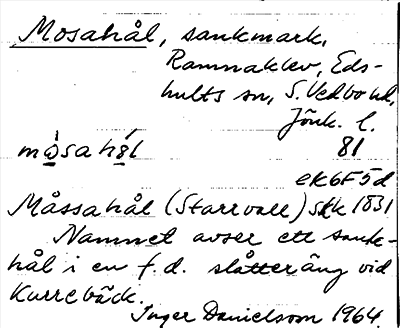 Mosahål, sankmark,
Ramnaklev, Eds-
hults sn, S. Vedbo hd,
Jönk. l.
mòsahǻl 81
ek6F5d
Måssahål (Starrvall) Stk 1831
Namnet avser ett sank-
hål i en f.d. slåtteräng vid
Kurrebäck.
Inger Danielsson 1964.